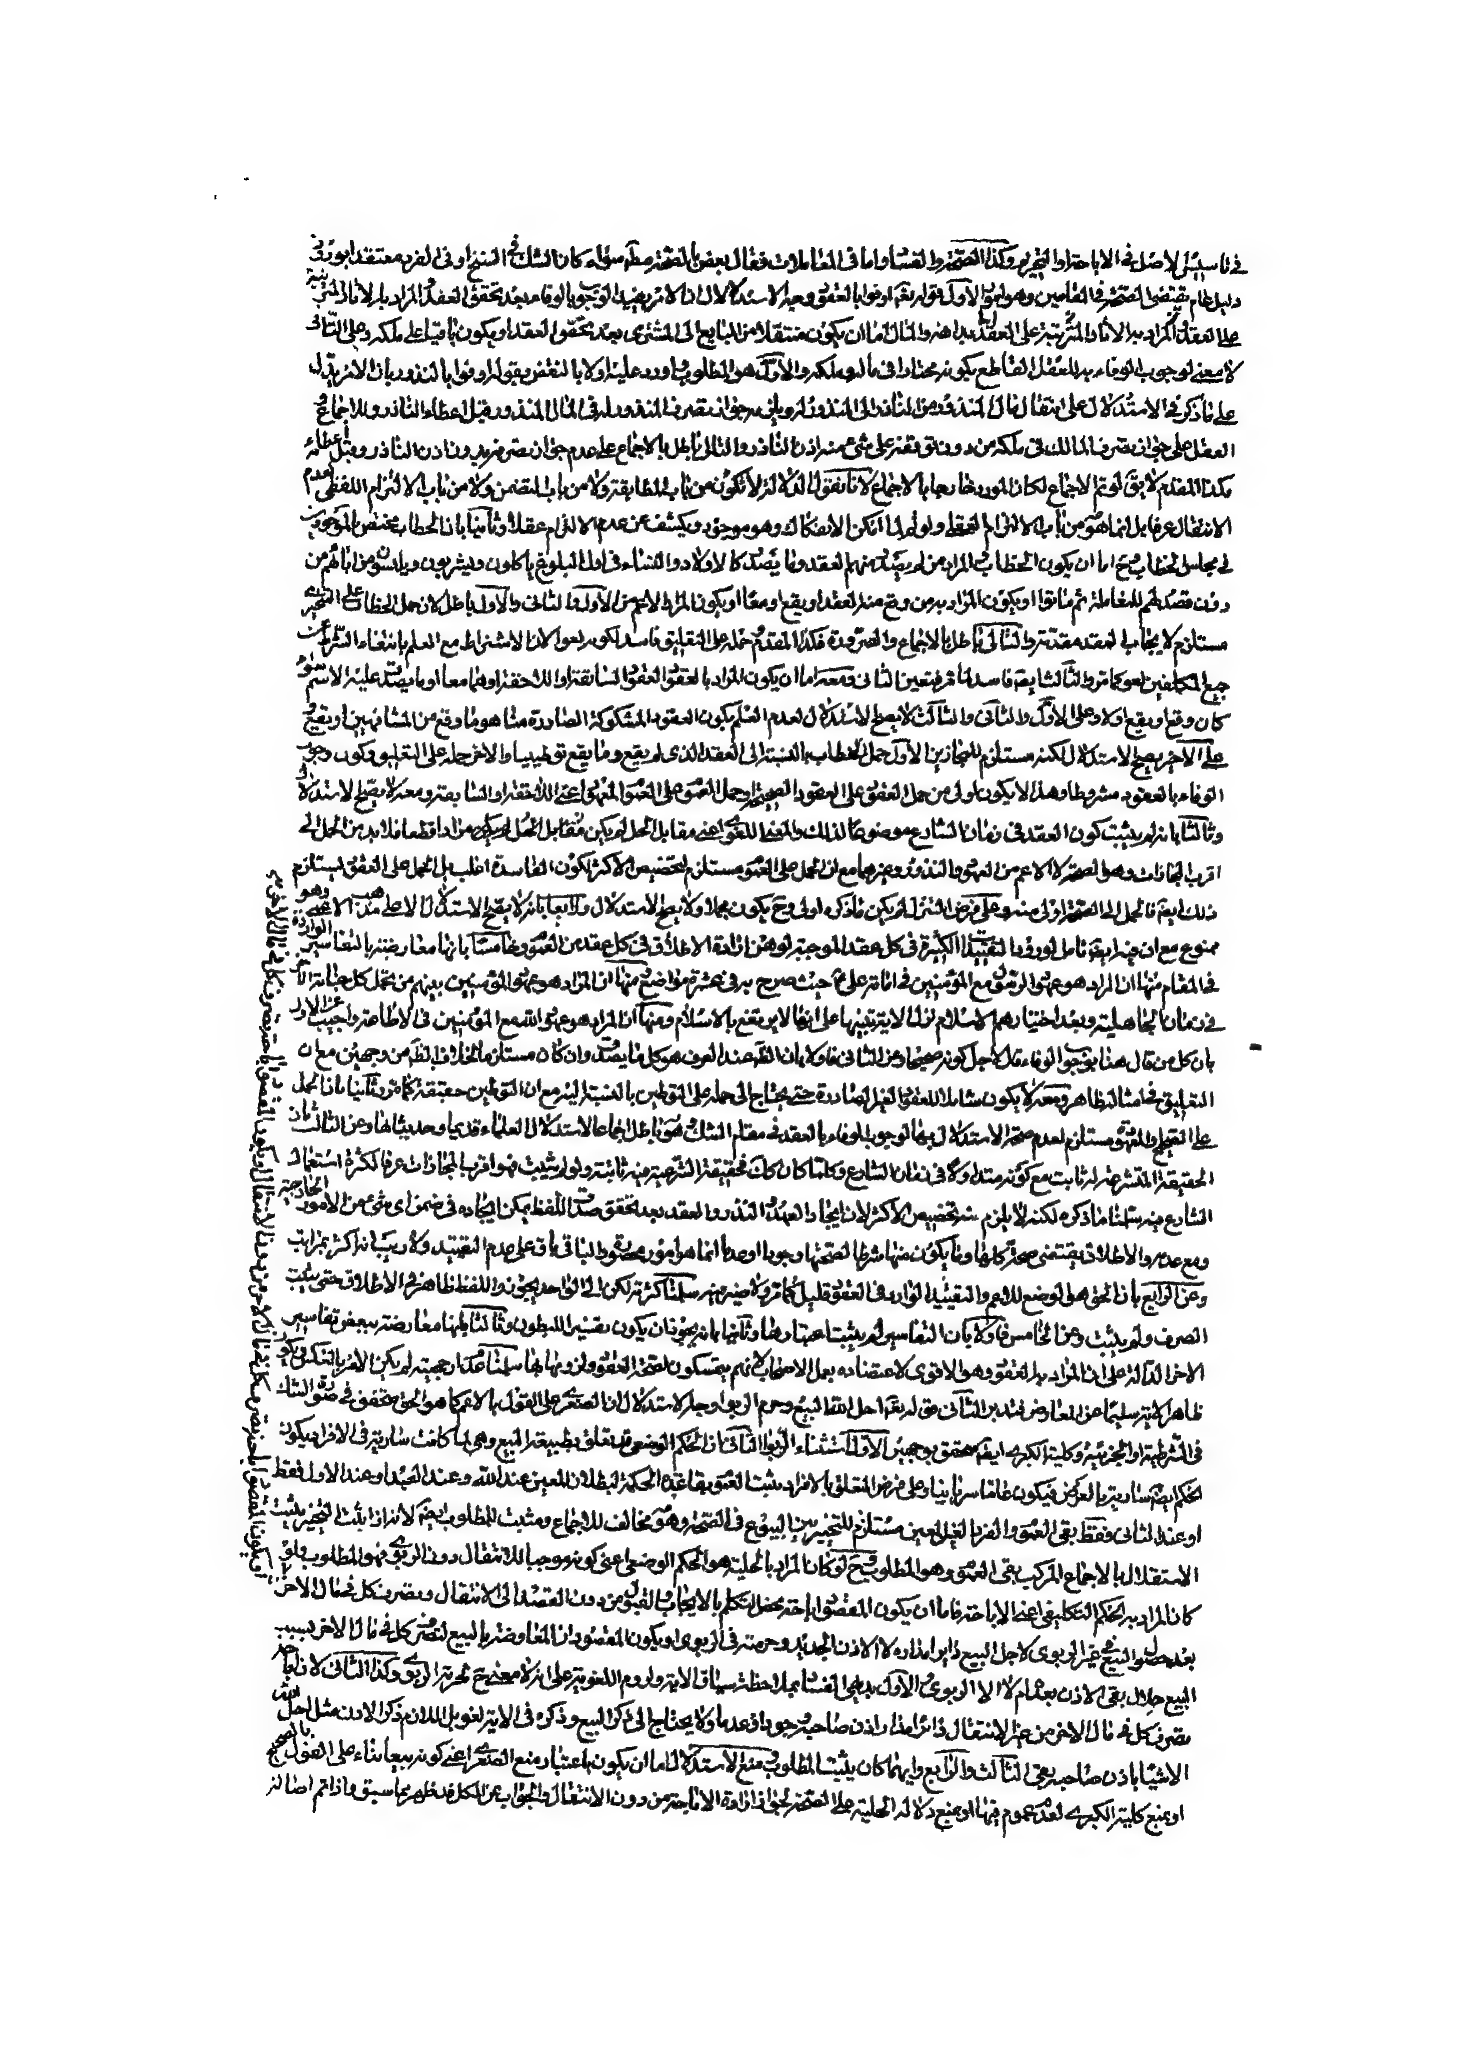 في تاسيس الاصل في الاباحة او التحريم وكذا الصحة والفساد واما في المعاملات فقال بعض بالصحة مطلقا سواء كان الشك في النسخ او في الفرد معتقدا بورود
دليل عام يقتضي الصحة في المقامين وهو امور الاول قوله تعه اوفوا بالعقود وجه الاستدلال ان الامر يفيد الوجوب بالوفاء بعد تحقق العقد والمراد به الاثار المترتبة
على العقد المراد به الاثار المترتبة على العقد اما ان يكون منتقلا من البايع الى المشتري بعد تحقق العقد او يكون باقيا على ملكه وعلى الثاني
لا معنى لوجوب الوفاء به للعقل القاطع بكونه مختارا في ماله وملكه والاول هو المطلوب اورد عليه اولا بالنقض بقوله اوفوا بالنذور بان الامر يدل
على ما ذكر في الاستدلال على انتقال مال المنذور من الناذر الى المنذور له ويلزمه جواز تصرف المنذور له في المال المنذور قبل اعطاء الناذر وللاجماع و
العقل على جواز تصرف المالك في ملكه من دون توقفه على شيء منه اذن الناذر والتالي باطل بالاجماع على عدم جواز تصرفه بدون اذن الناذر وقبل اعطائه
فكذا المقدم لا يق لو تم الاجماع لكان المورد خارجا بالاجماع لانا نقول الدلالة لا تكون من باب المطابقة ولا من باب التضمن ولا من باب الالتزام اللفظي لعدم
الانتقال عرفا بل انما هو من باب الالتزام العقلي ولو تم لما امكن الانفكاك وهو موجود ويكشف عن عدم الالتزام عقلا وثانيا بان الخطاب مختص بالموجودين
في مجلس الخطاب فح اما ان يكون الخطاب المراد من لم يصدر منهم العقد وما يصدر كالاولاد والنساء في اول البلوغ ياكلون ويشربون ويلبسون من ابائهم من
دون قصدهم للمعاملة ثم ماتوا او يكون المراد به من وقع منه العقد او يقع او معا او يكون المراد الاعم من الاول والثاني والاول باطل لان حمل الخطاب على التنجيزي
مستلزم لايجاب العقد مقدمة والتالي باطل بالاجماع والضرورة فكذا المقدم وحمله على التعليق فاسد لكونه لغوا لان الاشتراط مع العلم بانتفاء الشرط عن
جميع المكلفين لغو كما مر والثالث ايضه فاسد لما مر فتعين الثاني ومعه اما ان يكون المراد بالعقود العقود السابقة او اللاحقة او هما معا او ما يصدق عليه الاسم سواء
كان وقع او يقع او لا وعلى الاول والثاني والثالث لا يصح الاستدلال لعدم العلم بكون العقود المشكوكة الصادرة منا هو ما وقع من المشافهين او يقع و
على الاخير يصح الاستدلال لكنه مستلزم للمجازين الاول حمل الخطاب بالنسبة الى العقد الذي لم يقع وما يقع توطينيا والاخر حمله على التعليق وكون وجوب
الوفاء بالعقود مشروطا وهذا لا يكون اولى من حمل العقود على العقود الصحيحة او حمل العقود على العقود المعهودة اعني اللاحقة او السابقة ومعه لا يصح الاستدلال
وثالثا بانه لم يثبت كون العقد في زمان الشارع موضوعا لذلك والمعنى اللغوي اعني مقابل الحل لم يكن مرادا قطعا فلا بد من الحمل الى
اقرب المجازات وهو الصحة لا الاعم من العهود والنذور وغيرهما مع ان الحمل على العموم مستلزم لتخصيص الاكثر لكون الفاسدة اغلب بل الحمل على العقود يستلزم
ذلك ايضه فالحمل الى الصحة اولى منه وعلى فرض التنزل لم يكن ما ذكره اولى وح يكون مجملا ولا يصح الاستدلال ورابعا بانه لا يصح الاستدلال الا على مذهب الاعمي وهو
ممنوع مع ان فيه ايضه تامل لورود التقييدات الكثيرة في كل عقد الموجبة لوهن ارادة الاطلاق في كل عقد من العقود وخامسا بانها معارضة بالتفاسير الواردة
في المقام منها ان المراد هو عهود الرسول مع المؤمنين في امامة علي ع حيث صرح به في عشرة مواضع منها ان المراد هو عهود المؤمنين بينهم من تحمل كل جناية الاخر
في زمان الجاهلية وبعد اختيارهم الاسلام ومنها ان المراد هو عهود الله مع المؤمنين في الاطاعة واجيب عن الاول
بان كل من قال هنا بوجوب الوفاء قال لاجل كونه صحيحا وعن الثاني فاولا بان الظه عند العرف هو كل ما يصدق وان كان مستلزما لخلاف الظه من وجهين مع ان
التعليق في امثاله ظاهر ومعه لا يكون شاملا للعقود الغير الصادرة حتى يحتاج الى حمله على التوطين بالنسبة اليه مع ان التوطين حقيقة كما مر وثانيا بان الحمل
على الصحيح او المعهود مستلزم لعدم صحة الاستدلال بها لوجوب الوفاء بالعقد في مقام الشك وهو باطل اجماعا لاستدلال العلماء قديما وحديثا بها وعن الثالث بان
الحقيقة المتشرعة له ثابت مع كونه متداولا في زمان الشارع وكلما كان كك فحقيقة الشرعية فيه ثابتة ولو لم يثبت فهو اقرب المجازات عرفا لكثرة استعمال
الشارع فيه سلمنا ما ذكره لكنه لا يلزم منه تخصيص الاكثر لان ايجاد العهد والنذر والعقد بعد تحقق صدق اللفظ يمكن ايجاده في ضمن اي شيء من الامور الخارجية
ومع عدمه والاطلاق يقتضي صحة كلها وما يكون منها شرطا لصحتها وجودا او عدما انما هو امور محصورة والباقي باق على عدم التقييد ولا ريب انه اكثر بمراتب
وعن الرابع بان الحق هو الوضع للاعم والتقييد الوارد في العقود قليل كما مر ولا ضير فيه سلمنا كثرته لكن الى الواحد يجوز واللفظ ظاهر في الاطلاق حتى يثبت
الصرف ولم يثبت وعن الخامس فاولا بان التفاسير لم يثبت اعتبارها وثانيا بانه يجوز ان يكون تفسير البطون وثالثا بانها معارضة ببعض تفاسير
الاخر الدالة على ان المراد به العقود وهو الاقوى لاعتضاده بعمل الاصحاب لانهم يتمسكون لصحة العقود ولزومها بها سلمنا عدم ارجحيته لم يكن الامر بالعكس ويكون
ظاهر الاية سليما عن المعارض فتدبر الثاني قوله تعه احل الله البيع وحرم الربوا وجه الاستدلال ان الصغرى على القول بالاعم كما هو الحق متحقق في صورة الشك
في الشرطية او الجزئية وكلية الكبرى ايضه محقق بوجهين الاول استثناء الربوا الثاني ان الحكم الوضعي قد تعلق بطبيعة البيع وهي لما كانت سارية في الافراد يكون
الحكم ايضه سارية بالعرض فيكون عاما سريانيا وعلى فرض التعلق بالافراد يثبت العموم بقاعدة الحكمة لبطلان المعين عند الله وعند العبد او عند الاول فقط
او عند الثاني فقط بقى العموم والفرد الغير المعين مستلزم للتخيير بين البيوع في الصحة وهو مخالف للاجماع ومثبت للمطلوب ايضه لانه اذا ثبت التخيير يثبت
الاستقلال بالاجماع المركب بقى العموم وهو المطلوب فح لو كان المراد بالحلية هو الحكم الوضعي اعني كونه موجبا للانتقال دون الربوي فهو المطلوب ولو
كان المراد به الحكم التكليفي اعني الاباحة فاما ان يكون المقصود اباحة محض التكلم بالايجاب والقبول من دون القصد الى الانتقال وتصرف كل في مال الاخر
بعد حصول البيع في غير الربوي لاجل البيع دايرا مداره لا الاذن الجديد وحرمته في الربوي او يكون المقصود ان المعاوضة بالبيع لتصرف كل في مال الاخر بسبب
البيع حلال بقى الاذن بعدم ام لا الا الربوي والاول بديهي الفساد بملاحظة سياق الاية ولزوم اللغوية على انه لا معنى ح لحرمة الربوي وكذا الثاني لان اباحة
تصرف كل في مال الاخر من غير الانتقال دائر مدار اذن صاحبه وجودا وعدما ولا يحتاج الى ذكر البيع وذكره في الاية لغو بل اللازم ذكر الاذن مثل احل الله
الاشياء باذن صاحبه بقى الثالث والرابع وايهما كان يثبت المطلوب ومنع الاستدلال اما ان يكون باعتبار منع الصغرى اعني كونه بيعا بناء على القول بالصحيح
او بمنع كلية الكبرى لعدم عموم فيها او بمنع دلالة الحلية على الصحة لجواز ارادة الاباحة من دون الانتقال والجواب عن الكل قد ظهر مما سبق واذا تم اصالة
او يكون المقصود اباحة تصرف كل في مال الاخر من دون الانتقال او يكون المقصود اباحة تصرف كل في مال الاخر